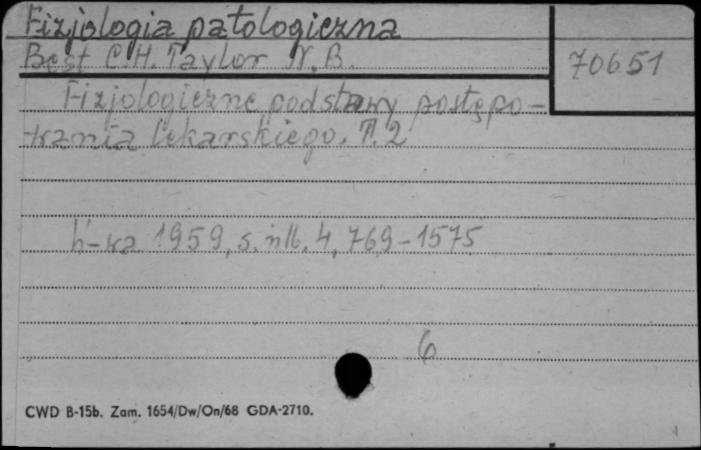 Fizjologia patologiczna
Best C.H. Taylor N.B.
70651
Fizjologiczne podstawy postępo-
wania lekarskiego. T. 2
W-wa 1959, s. nlb. 4, 769-1575
6
CWD B-15b. Zam. 1654/Dw/On/68 GDA-2710.